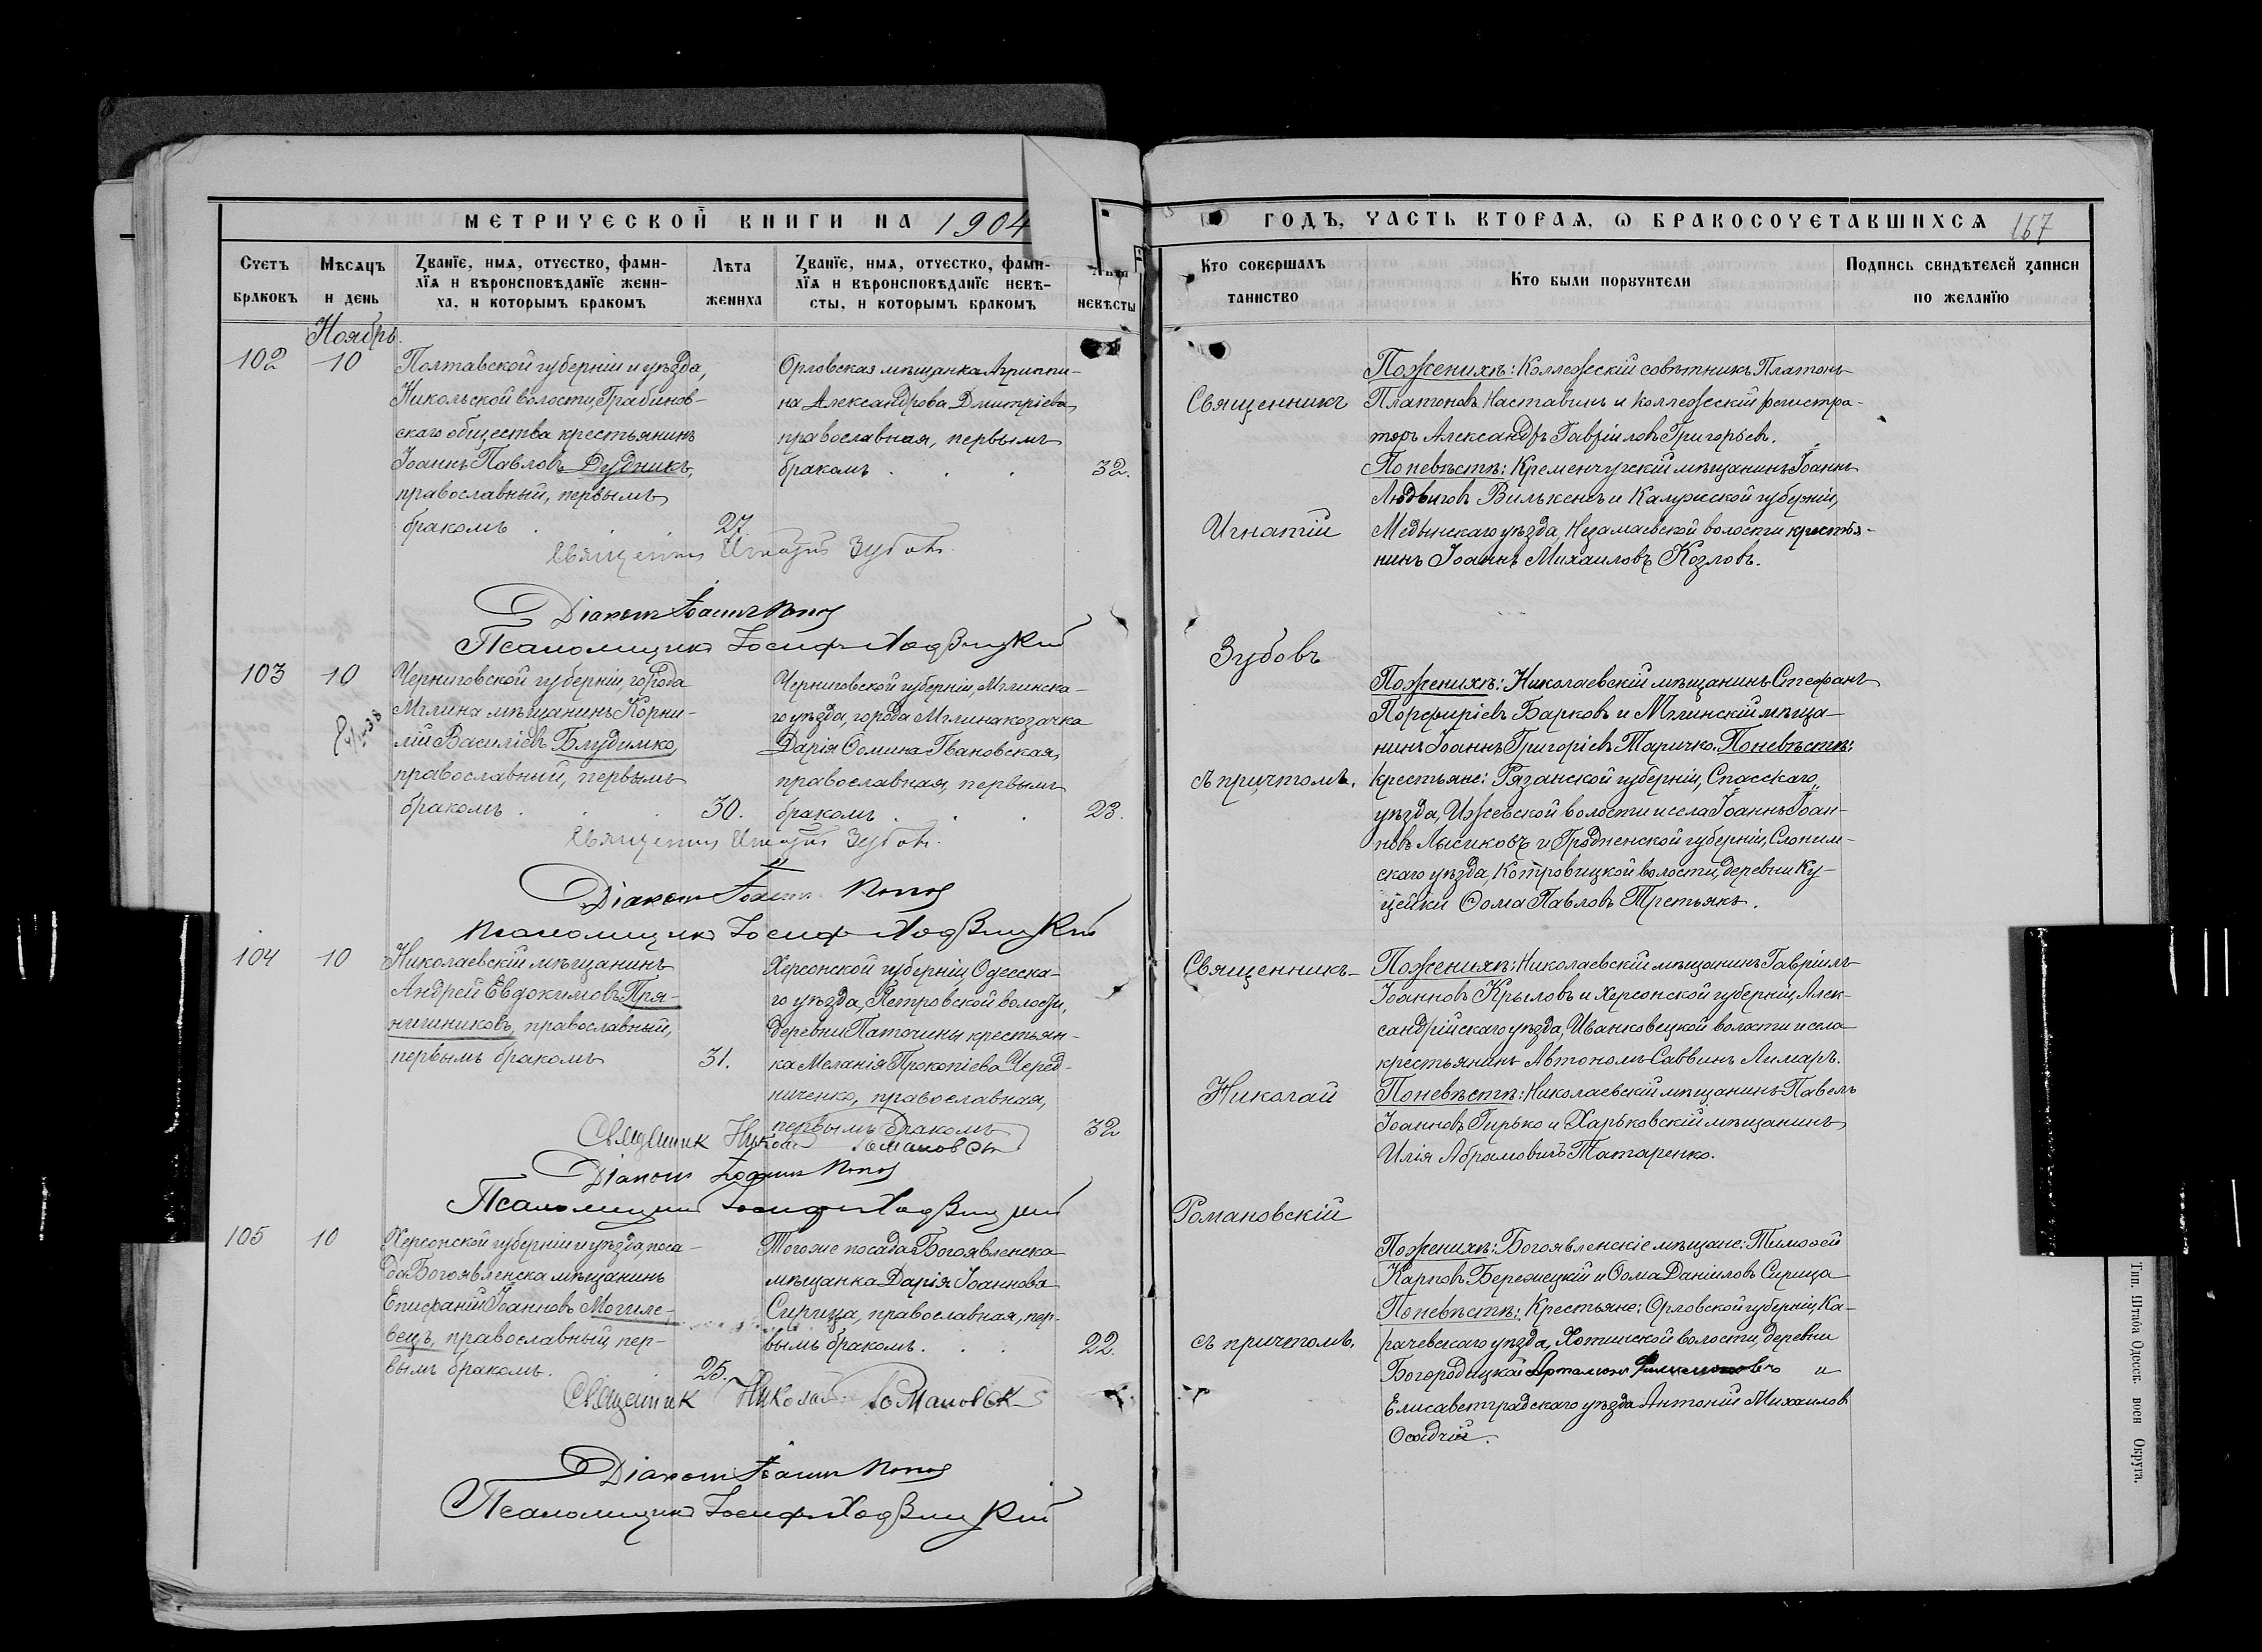 МЕТРИЧЕСКОЙ КНИГИ НА 1904
Счетъ браковъ
Мѣсяцъ и день
Званіе, имя, отчество, фами-
лія и вѣроисповѣданіе жени-
ха, и которымъ бракомъ
Лѣта жениха
Званіе, имя, отчество, фами-
лія и вѣроисповѣданіе невѣ-
сты, и которымъ бракомъ
невѣсты
Ноябрь.
102
10
Полтавской губерніи и уѣзда,
Никольской волости, Грабинов-
скаго общества крестьянинъ
Іоаннъ Павловъ Дудникъ,
православный, первымъ
бракомъ . . . 27.
Орловская мѣщанка Агриппи-
на Александрова Дмитріева,
православная, первымъ
бракомъ . . . 32.
Священникъ Игнатій Зубовъ.
Діаконъ Іоаннъ
Псаломщикъ Іосифъ Ходзицкій
103
10
Черниговской губерніи, города
Мглина мѣщанинъ Корни-
лій Василіевъ Блудимко,
православный, первымъ
бракомъ . . . 30.
Черниговской губерніи, Мглинска-
го уѣзда, города Мглина козачка
Дарія Ѳомина Гвановская,
православная, первымъ
бракомъ . . . 23.
Священникъ Игнатій Зубовъ.
Діаконъ Іоаннъ
Псаломщикъ Іосифъ Ходзицкій
104
10
Николаевскій мѣщанинъ
Андрей Евдокимовъ Пря-
нишниковъ, православный,
первымъ бракомъ 31.
Херсонской губерніи, Одесска-
го уѣзда, Петровской волости,
деревни Паточины крестьян-
ка Меланія Прокопіева Черед-
ниченко, православная,
первымъ бракомъ 32
Священник Николай Романовскій
Діаконъ Іоаннъ
Псаломщикъ Іосифъ Ходзицкій
105
10
Херсонской губерніи и уѣзда, поса-
да Богоявленска мѣщанинъ
Епифаній Іоанновъ Могиле-
вецъ, православный, пер-
вымъ бракомъ. 25.
Того же посада Богоявленска
мѣщанка Дарія Іоаннова
Сирица, православная, пер-
вымъ бракомъ. . . 22.
Священник Николай Романовскій
Діаконъ Іоаннъ
Псаломщикъ Іосифъ Ходзицкій
ГОДЪ, ЧАСТЬ ВТОРАЯ, Ѡ БРАКОСОЧЕТАВШИХСЯ 167
Кто совершалъ таинство
Кто были поручители
Подпись свидѣтелей записи
по желанію
Священникъ
Игнатій
Зубовъ
съ причтомъ.
По женихѣ: Коллежскій совѣтникъ Платонъ
Платоновъ Наставинъ и коллежскій регистра-
торъ Александръ Гавріиловъ Григорьевъ.
По невѣстѣ: Кременчугскій мѣщанинъ Іоаннъ
Людвиговъ Вилькенъ и Калужской губерніи,
Медынскаго уѣзда, Незамаевской волости крестья-
нинъ Іоаннъ Михаиловъ Козловъ.
По женихѣ: Николаевскій мѣщанинъ Стефанъ
Порфиріевъ Барковъ и Мглинскій мѣща-
нинъ Іоаннъ Григоріевъ Таричко. По невѣстѣ:
крестьяне: Рязанской губерніи, Спасскаго
уѣзда, Ижевской волости и села Іоаннъ Іоан-
новъ Лысиковъ и Гродненской губерніи, Слоним-
скаго уѣзда, Котровицкой волости, деревни Ку-
цейки Ѳома Павловъ Третьякъ.
Священникъ
Николай
Романовскій
съ причтомъ.
По женихѣ: Николаевскій мѣщанинъ Гавріилъ
Іоанновъ Крыловъ и Херсонской губерніи, Алек-
сандрійскаго уѣзда, Иванковецкой волости и села
крестьянинъ Автономъ Саввинъ Лимаръ.
По невѣстѣ: Николаевскій мѣщанинъ Павелъ
Іоанновъ Гирько и Харьковскій мѣщанинъ
Илія Абрамовичъ Татаренко.
По женихѣ: Богоявленскіе мѣщане: Тимоѳей
Карповъ Бережецкій и Ѳома Даніиловъ Сирица
По невѣстѣ: Крестьяне: Орловской губерніи, Ка-
рачевскаго уѣзда, Хотинской волости, деревни
Богородицкой Артамонъ Филимоновъ и
Елисаветградскаго уѣзда Антоній Михаиловъ
Осадчій.
Тип. Штаба Одесск. воен Округа.